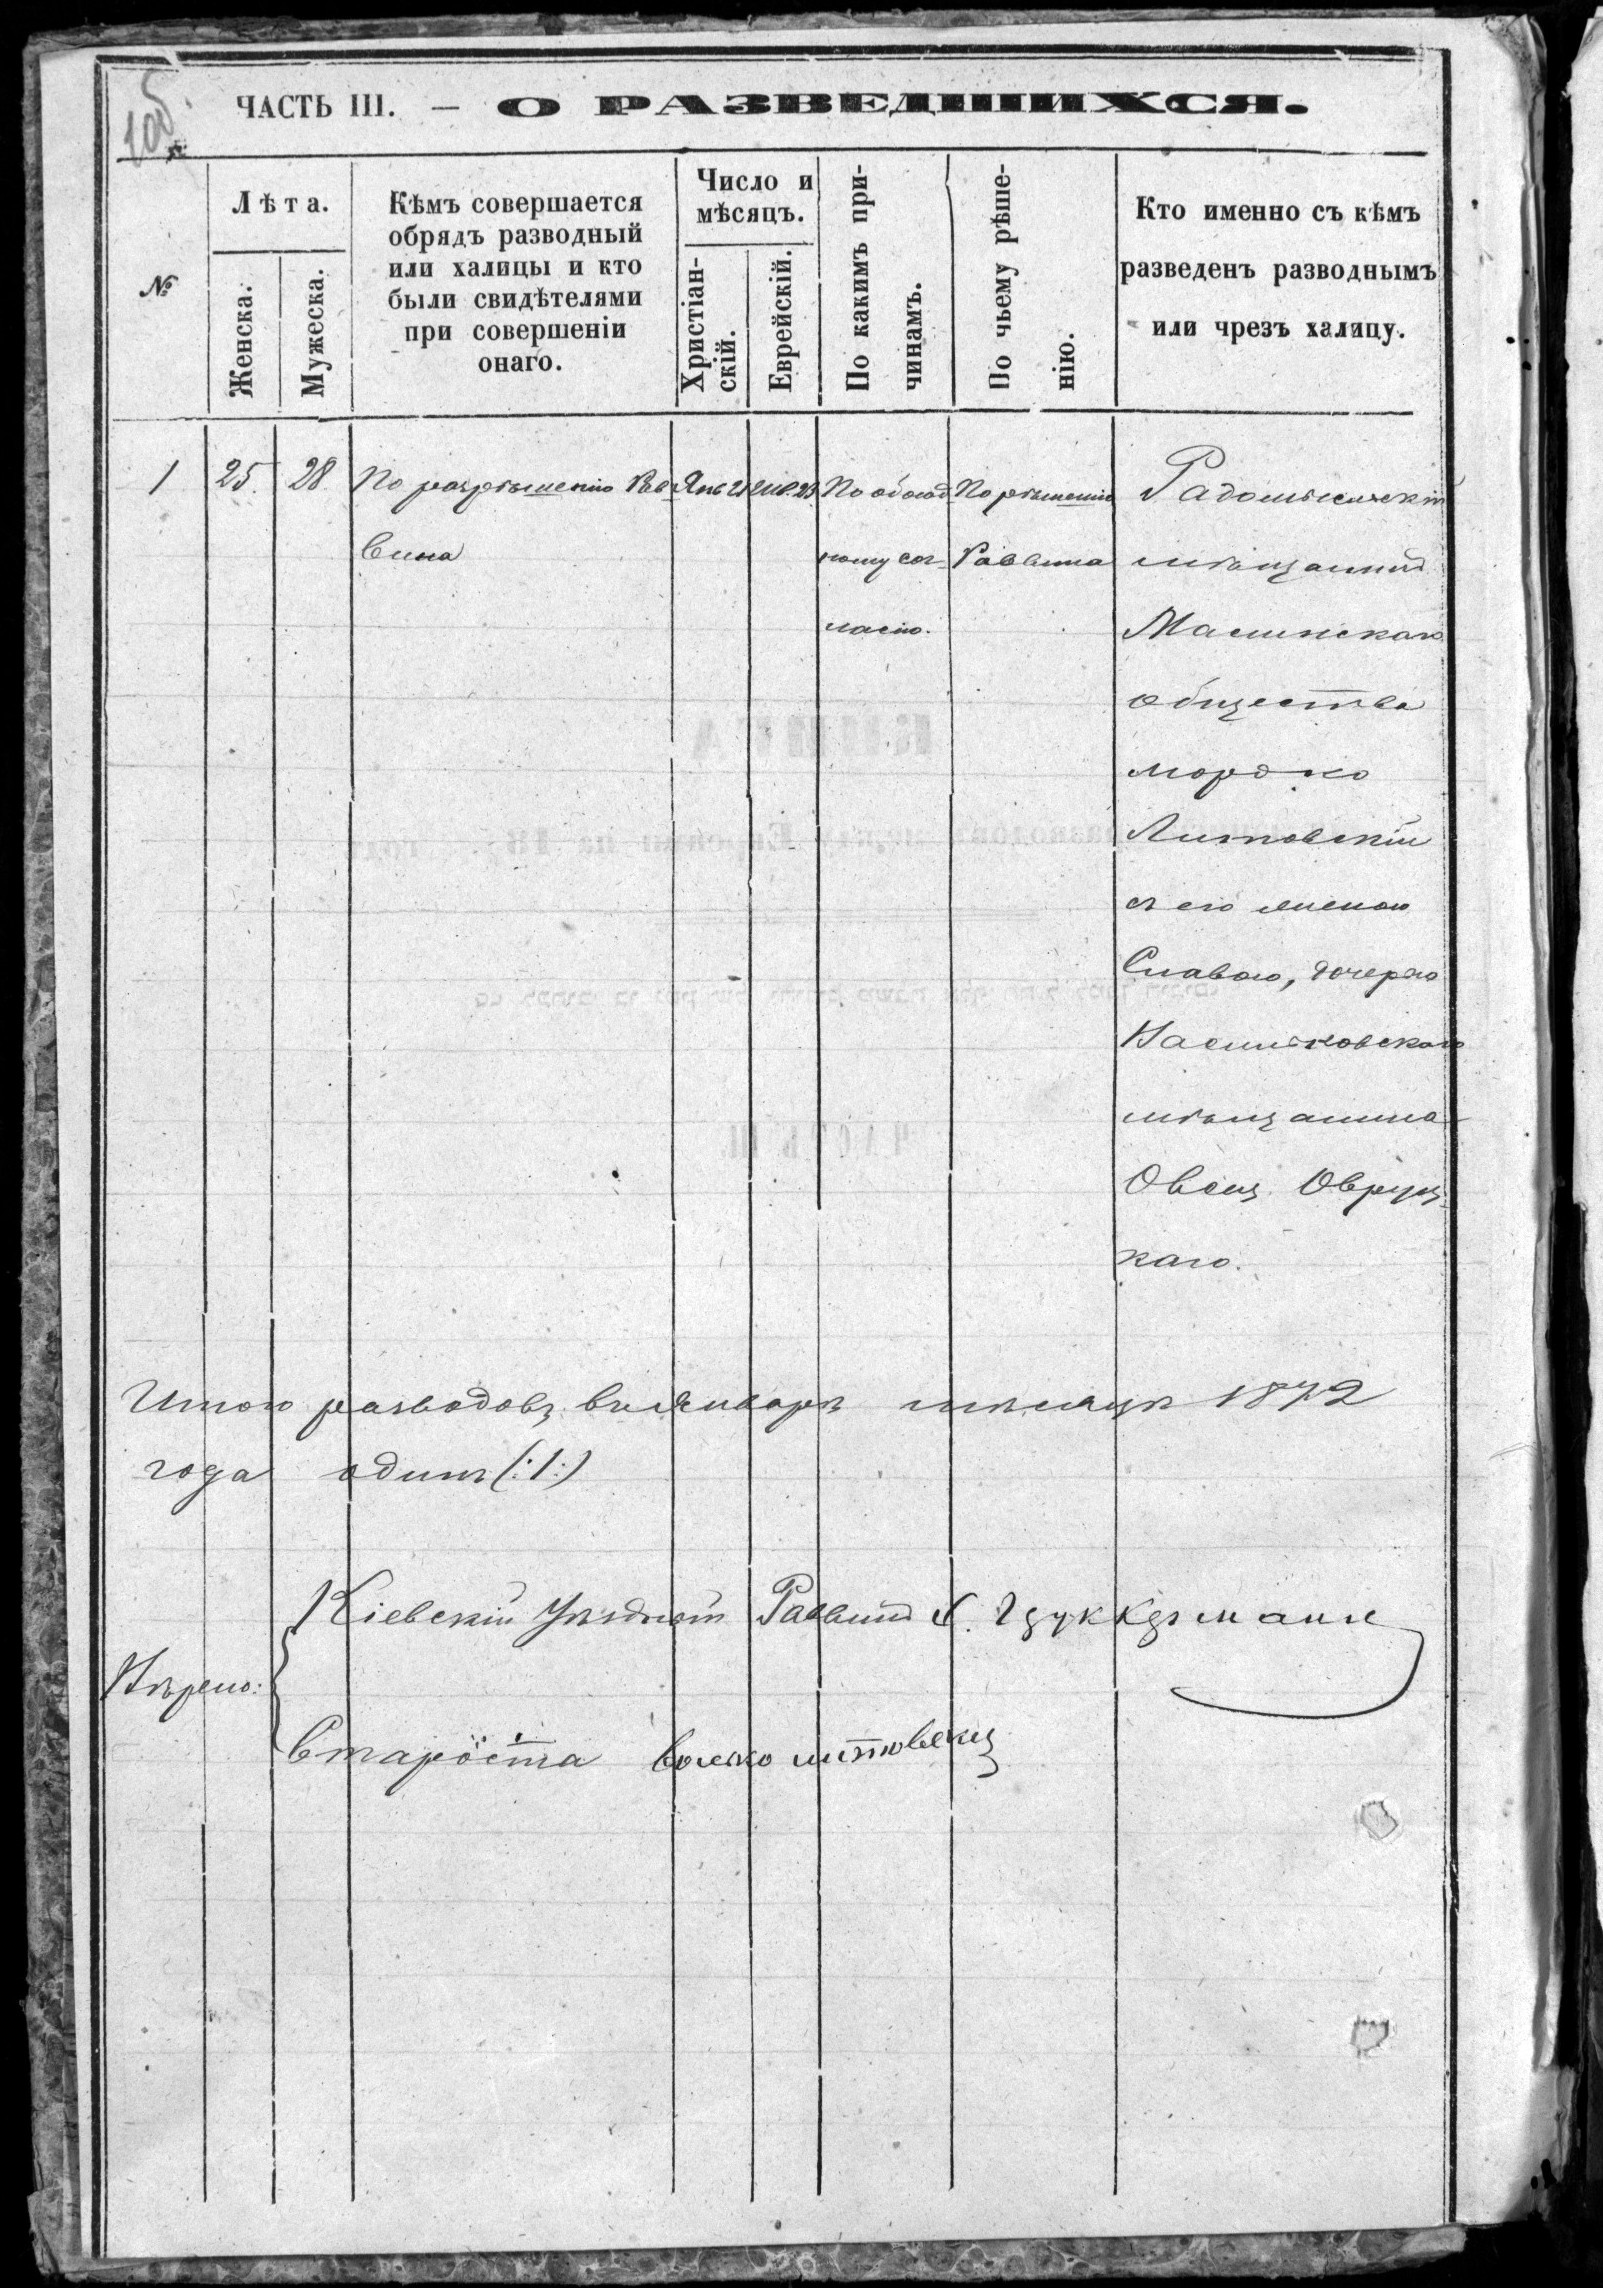 ЧАСТЬ III. — О РАЗВЕДШИХСЯ.
№
Лѣта.
Женска.
Мужеска.
Кѣмъ совершается
обрядъ разводный
или халицы и кто
были свидѣтелями
при совершеніи
онаго.
Число и
мѣсяцъ.
Христіан-
скій.
Еврейскій.
По какимъ при-
чинамъ.
По чьему рѣше-
нію.
Кто именно съ кѣмъ
разведенъ разводнымъ
или чрезъ халицу.
1
25
28
По разрѣшенію Рав
вина
Янв 21
По обоюд
ному сог-
ласію.
По рѣшенію
Раввина
Радомысльскій
мѣщанинъ
Малинскаго
общества
Мордко
Литовскій
съ его женою
Славою, дочерью
Васильковскаго
мѣщанина
Овсец Овруц-
каго.
Итого разводовъ въ Январѣ мѣсяцѣ 1872
года одинъ (:1:)
Вѣрно:
Кіевскій Уѣздный Раввинъ Е. Цуккерманъ
Староста Волько Литовскій